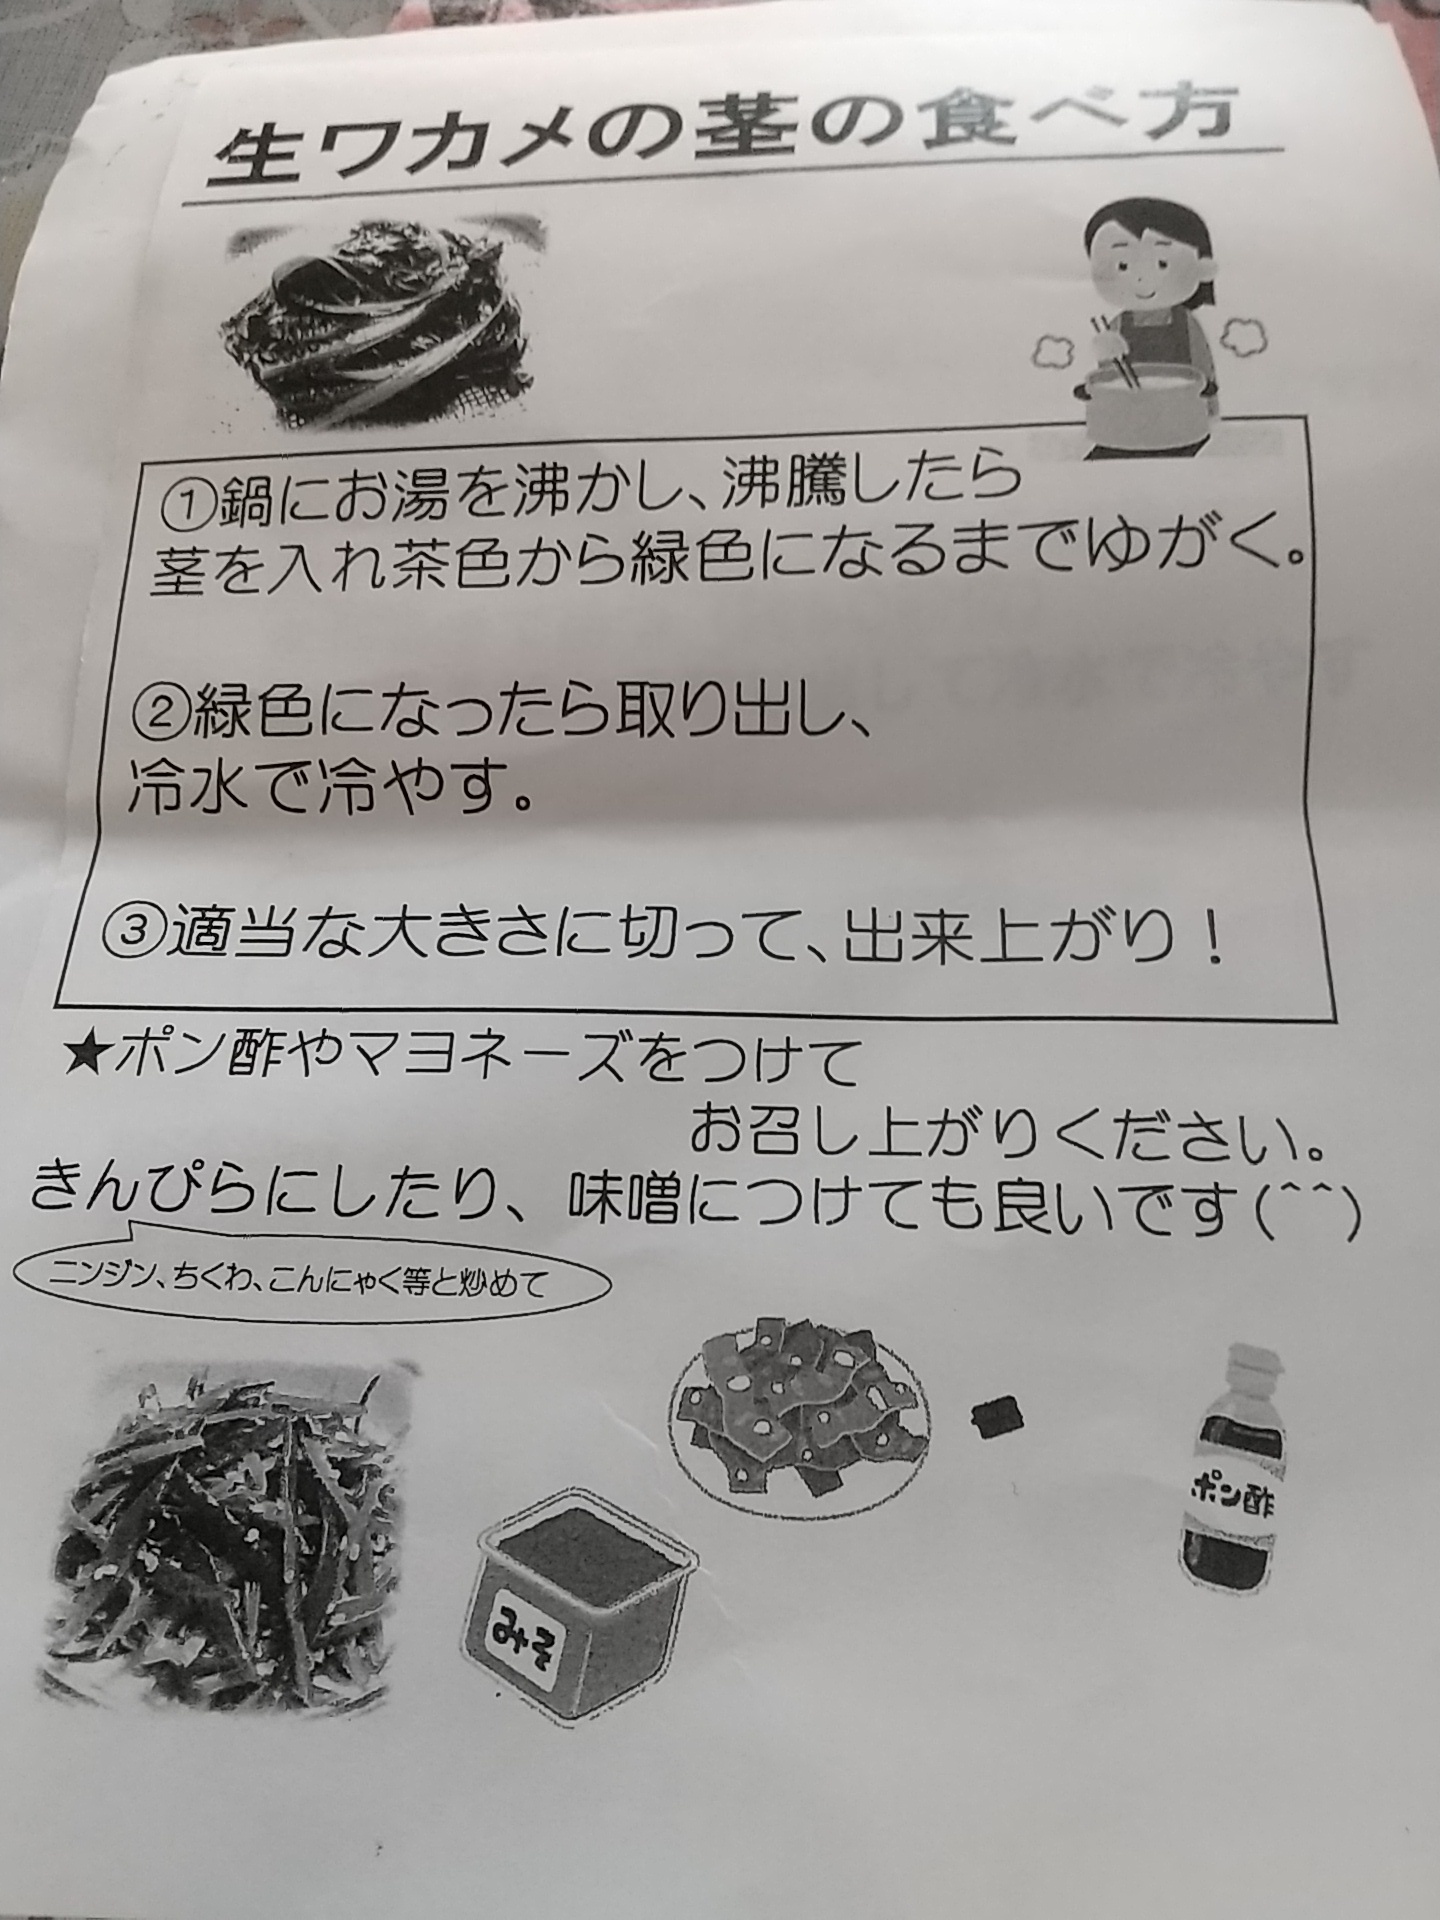 生ワカメの茎の食べ方
①鍋にお湯を沸かし、沸騰したら
茎を入れ茶色から緑色になるまでゆがく。
②緑色になったら取り出し、
冷水で冷やす。
③適当な大きさに切って、出来上がり！
★ポン酢やマヨネーズをつけて
お召し上がりください。
きんぴらにしたり、味噌につけても良いです(^^)
ニンジン、ちくわ、こんにゃく等と炒めて
ポン酢
みそ